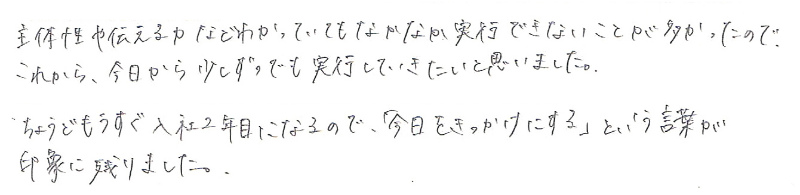 主体性や伝える力などわかっていてもなかなか実行できないことが多かったので、
これから、今日から少しずつでも実行していきたいと思いました。
ちょうどもうすぐ入社2年目になるので、「今日をきっかけにする」という言葉が
印象に残りました。